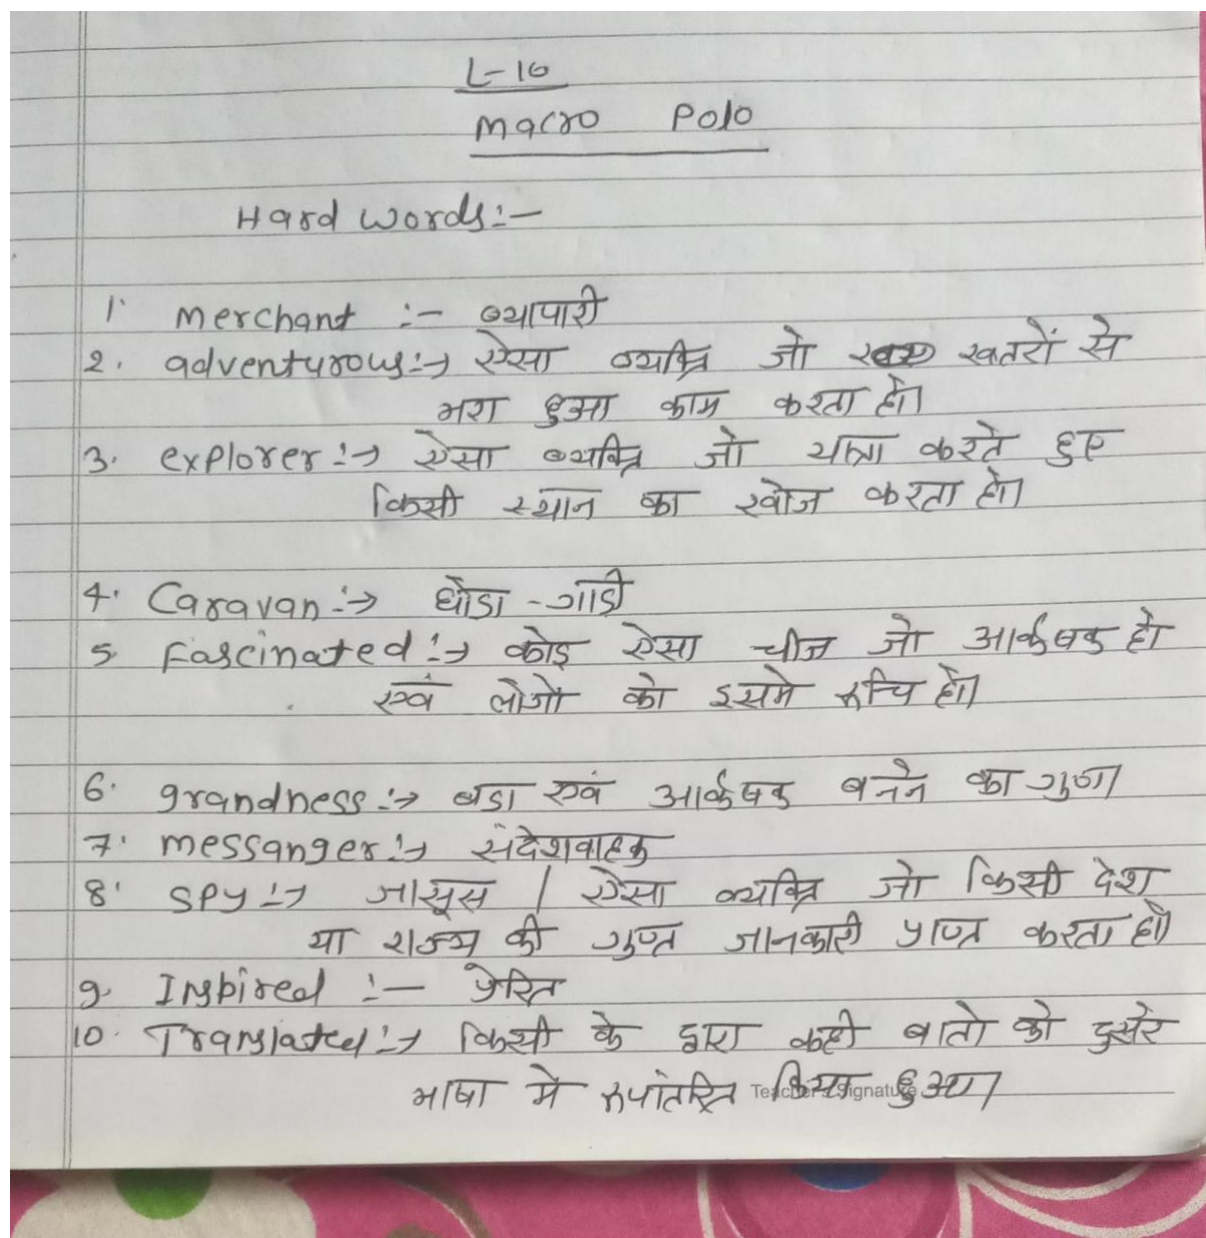 L-16
Macro Polo
Hard words:-
1. merchant :- व्यापारी
2. adventurous:→ ऐसा व्यक्ति जो खतरों से
भरा हुआ काम करता हो।
3. explorer:→ ऐसा व्यक्ति जो यात्रा करते हुए
किसी स्थान का खोज करता हो।
4. Caravan:→ घोडा-गाडी
5. Fascinated:→ कोइ ऐसा चीज जो आर्कषक हो
एवं लोगो को इसमे रूचि हो।
6. grandness:→ बडा एवं आर्कषक बनने का गुण।
7. messanger:→ संदेशवाहक
8. SPY:→ जासूस / ऐसा व्यक्ति जो किसी देश
या राज्य की गुप्त जानकारी प्राप्त करता हो।
9. Inspired :- प्रेरित
10. Translated:→ किसी के द्वारा कही बातो को दुसरे
भाषा मे रूपांतरित किया हुआ।
Teacher's Signature